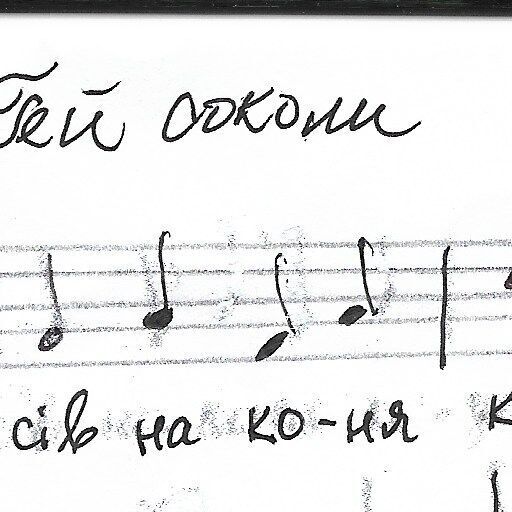 Гей соколи
сів на ко-ня к